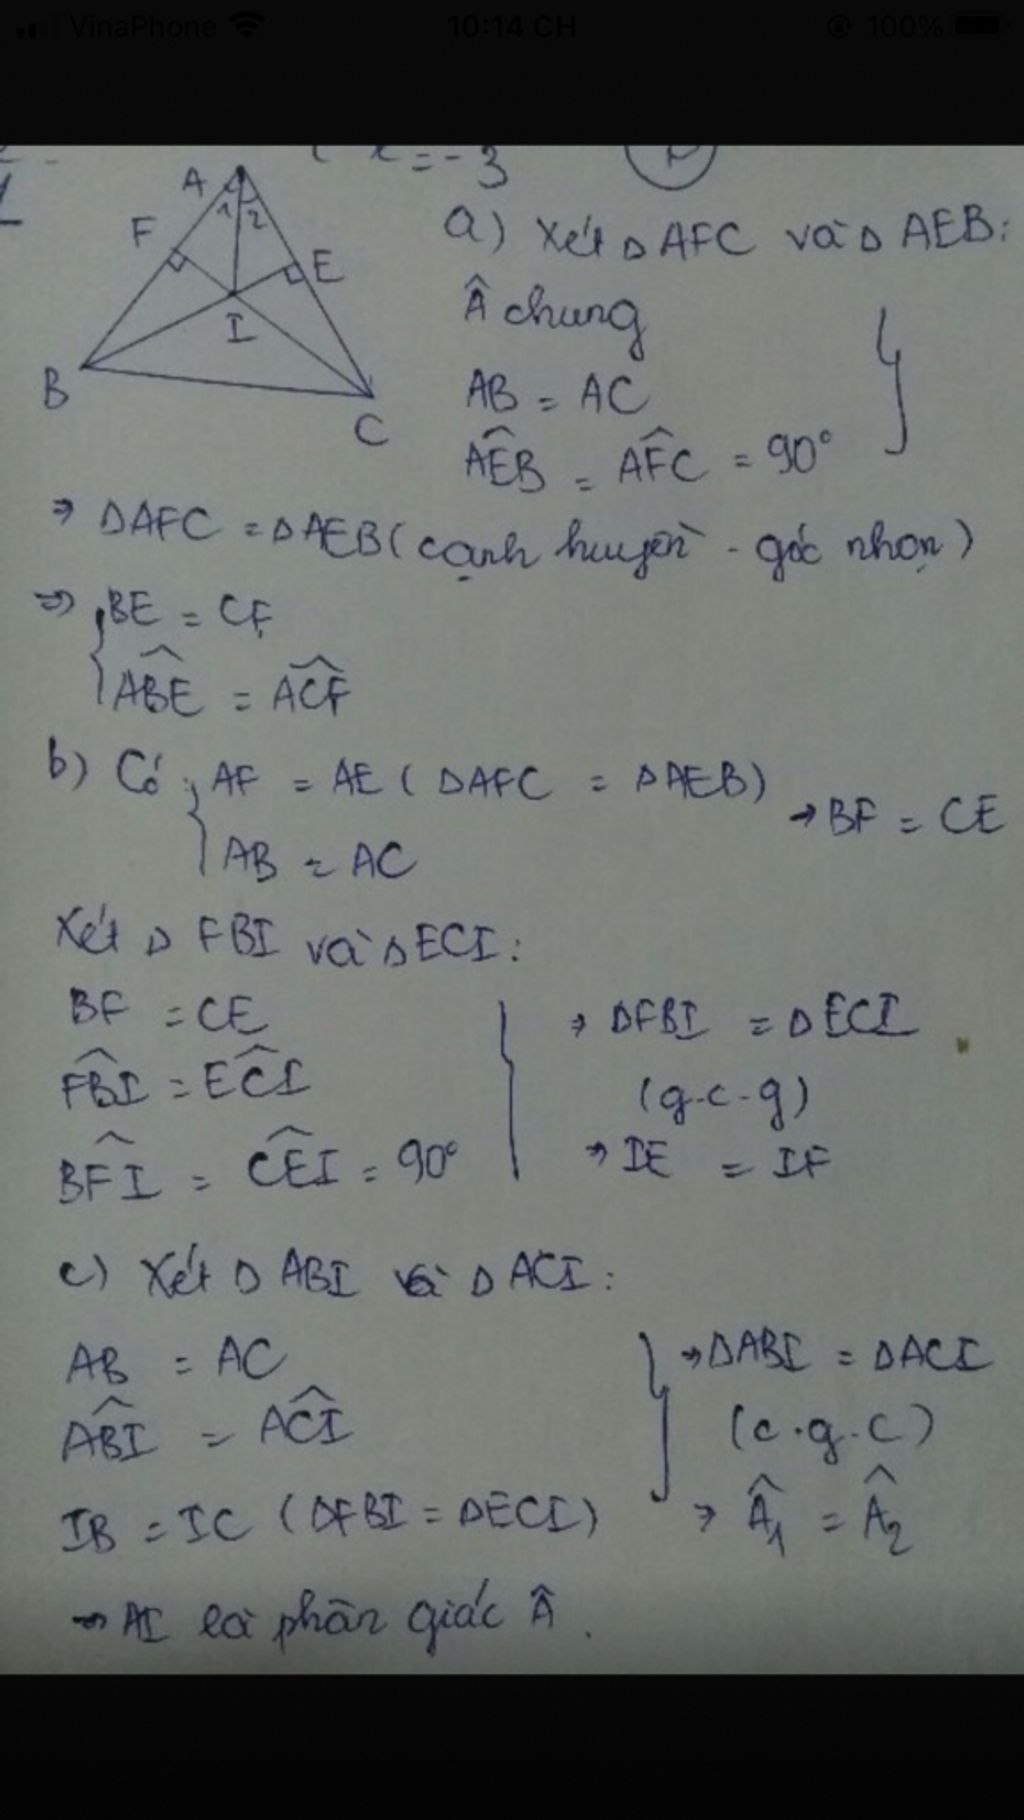 VinaPhone 10:14 CH 100%
= -3
A
1 2
F
E
I
B
C
a) Xét Δ AFC và Δ AEB:
Â chung
AB = AC
AÊB = AF̂C = 90°
⇒ ΔAFC = ΔAEB (cạnh huyền - góc nhọn)
⇒ { BE = CF
AB̂E = AĈF
b) Có { AF = AE (ΔAFC = ΔAEB) → BF = CE
AB = AC
Xét Δ FBI và Δ ECI:
BF = CE
FB̂I = EĈI
BF̂I = CÊI = 90°
} ⇒ ΔFBI = ΔECI
(g-c-g)
⇒ IE = IF
c) Xét Δ ABI và Δ ACI:
AB = AC
AB̂I = AĈI
IB = IC (ΔFBI = ΔECI)
} ⇒ ΔABI = ΔACI
(c.g.c)
⇒ Â1 = Â2
⇒ AI là phân giác Â.